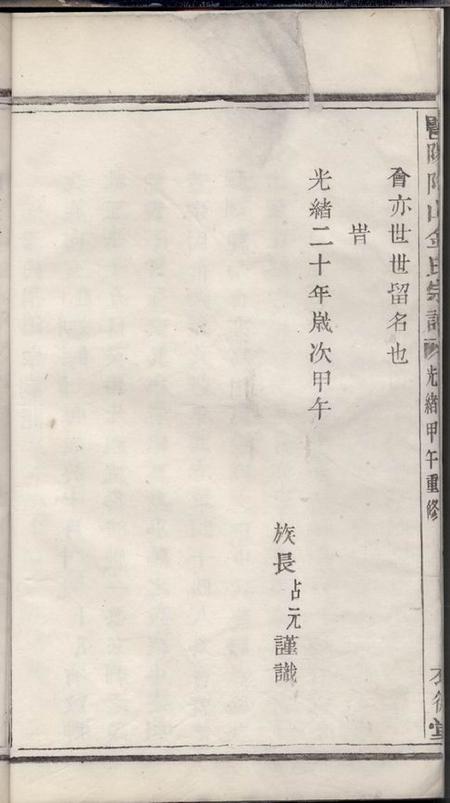 會亦世世留名也
旹
光緒二十年歲次甲午
族長占元謹識
陽山金氏宗譜
光緒甲午重修
堂